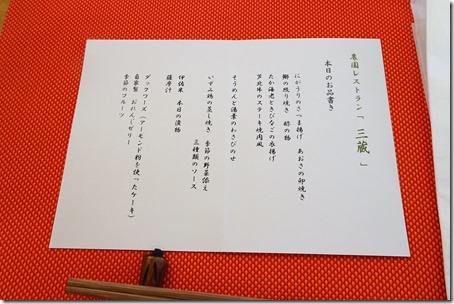 農園レストラン「 三蔵 」
本日のお品書き
にがうりのさつま揚げ　あおさの卵焼き
鰤の照り焼き　酢の物
たか海老ときびなごの衣揚げ
芦北牛のステーキ焼肉風
そうめんと湯葉のわさびのせ
いずみ鶏の蒸し焼き　季節の野菜添え
三種類のソース
伊佐米　本日の漬物
薩摩汁
ダックワーズ（アーモンド粉を使ったケーキ）
自家製　おれんじゼリー
季節のフルーツ